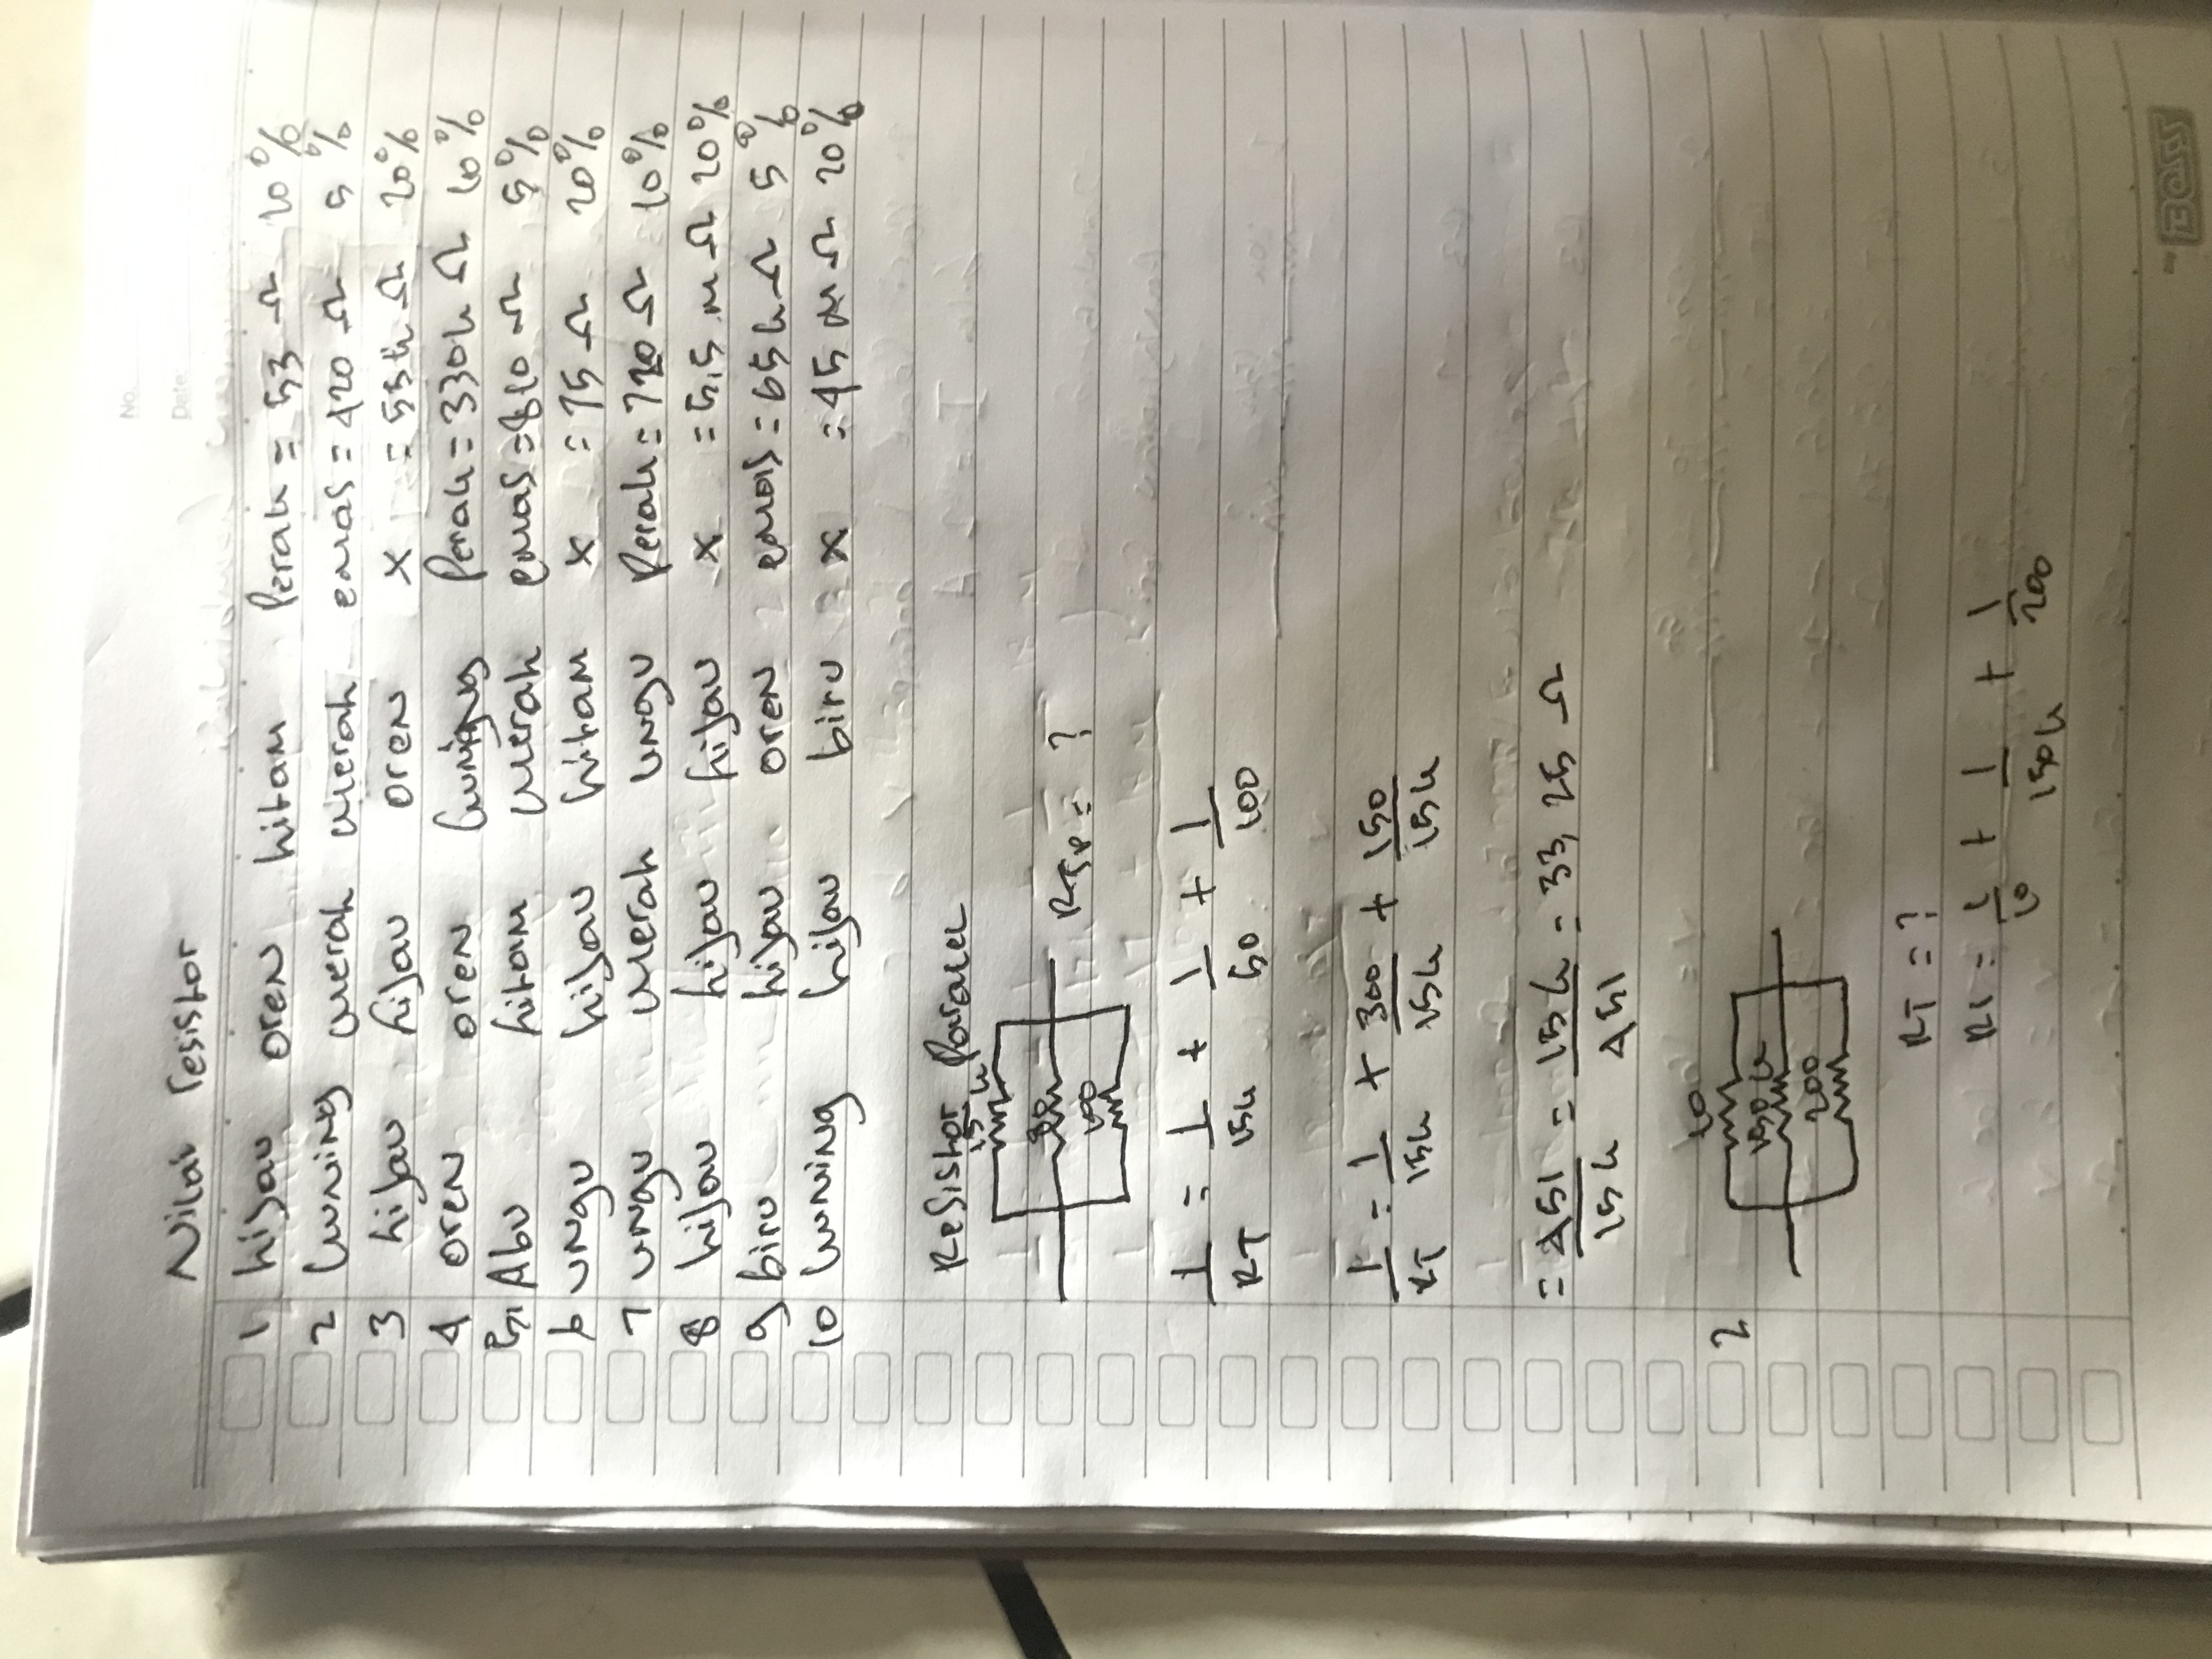 No.
Date:
Nilai resistor
1 hijau oren hitam Perak = 53 Ω 10%
2 kuning merah merah emas = 420 Ω 5%
3 hijau hijau oren x = 55k Ω 20%
4 oren oren kunigng Perak = 330k Ω 10%
5. Abu hitam merah emas = 810 Ω 5%
6 ungu hijau hitam x = 75 Ω 20%
7 ungu merah ungu Perak = 720 Ω 10%
8 hijau hijau hijau x = 5,5 m Ω 20%
9 biru hijau oren emas = 65k Ω 5%
10 kuning hijau biru x = 45 m Ω 20%
Resistor Paralel
15 k
100
= ?
1/RT = 1/15k + 1/50 + 1/100
1/RT = 1/15k + 300/15k + 150/15k
= 451/15k = 15k/451 = 33,25 Ω
2
10
150 k
200
RT = ?
RT = 1/10 + 1/150k + 1/200
BOSS